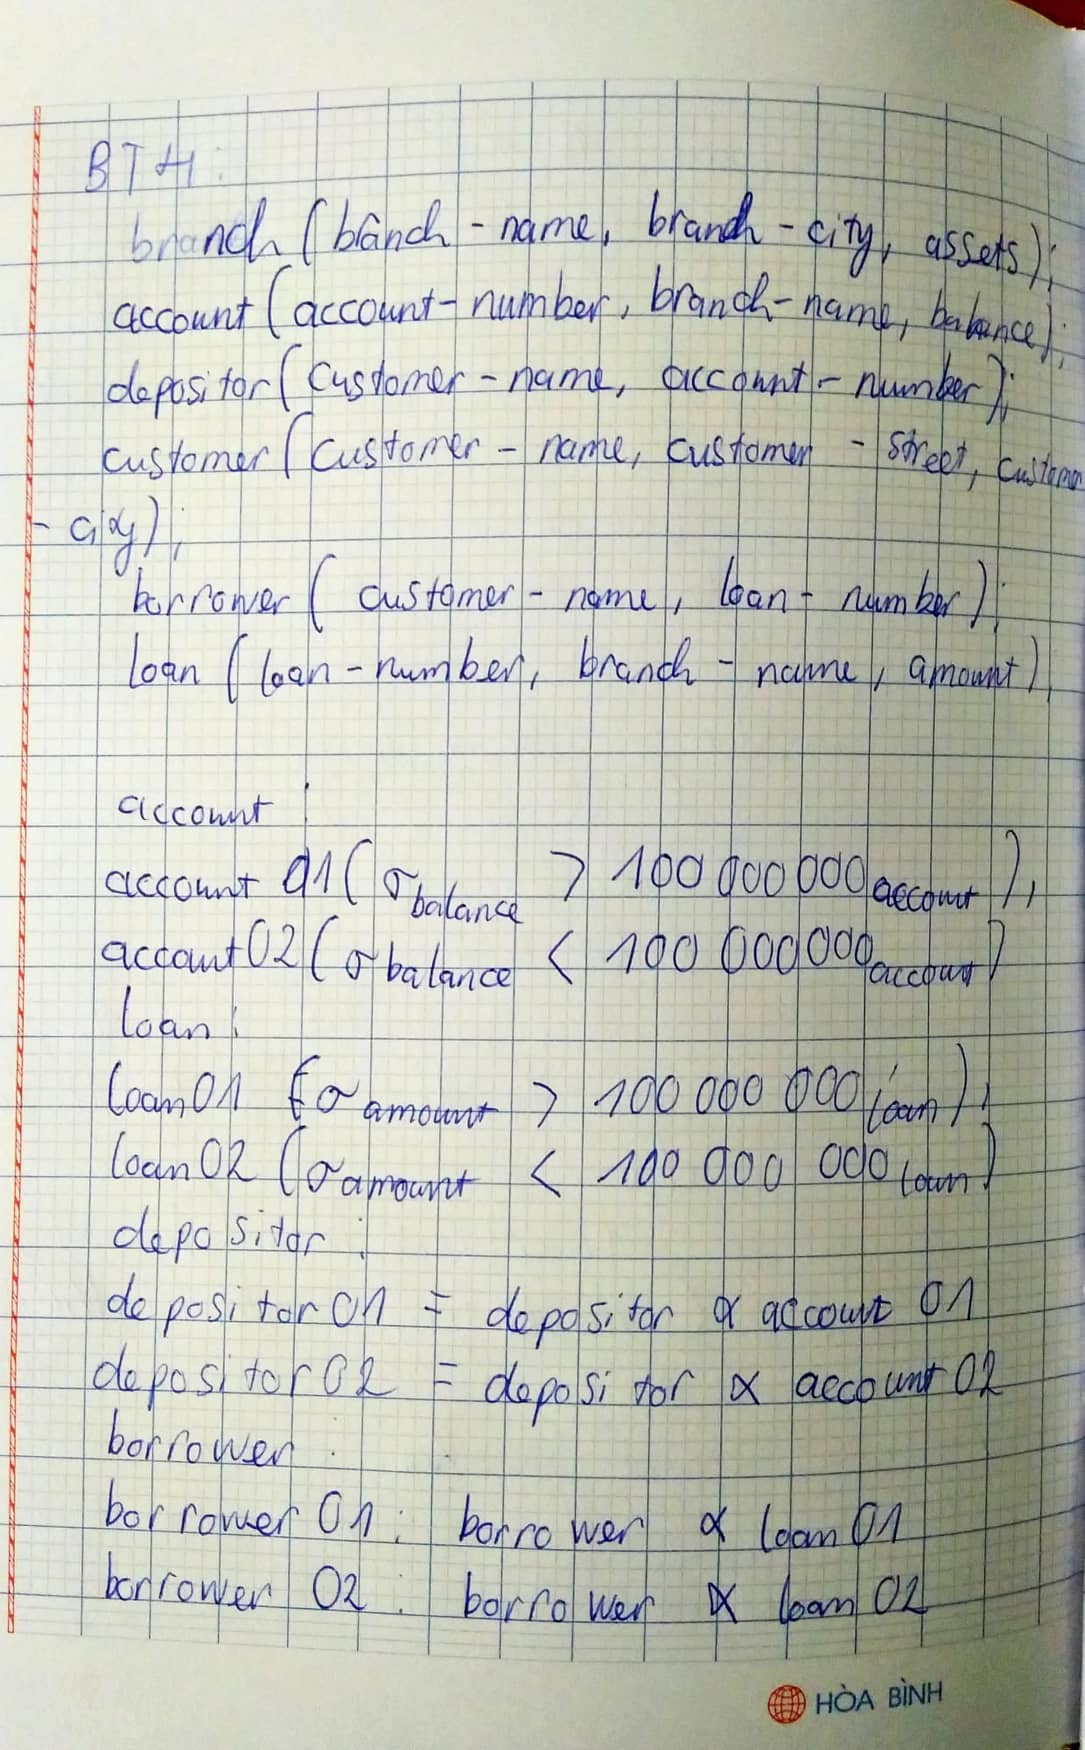 BTH:
branch (branch - name, branch - city, assets);
account (account - number, branch - name, balance);
depositor (customer - name, account - number);
customer (customer - name, customer - street, customer
- city);
borrower ( customer - name, loan - number);
loan (loan - number, branch - name, amount)
account :
account 01 (σ balance > 100 000 000 account ),
account 02 (σ balance < 100 000 000 account )
loan :
loan 01 (σ amount > 100 000 000 loan ),
loan 02 (σ amount < 100 000 000 loan )
depositor :
depositor 01 = depositor ∝ account 01
depositor 02 = depositor ∝ account 02
borrower :
borrower 01 : borrower ∝ loan 01
borrower 02 : borrower ∝ loan 02
HÒA BÌNH